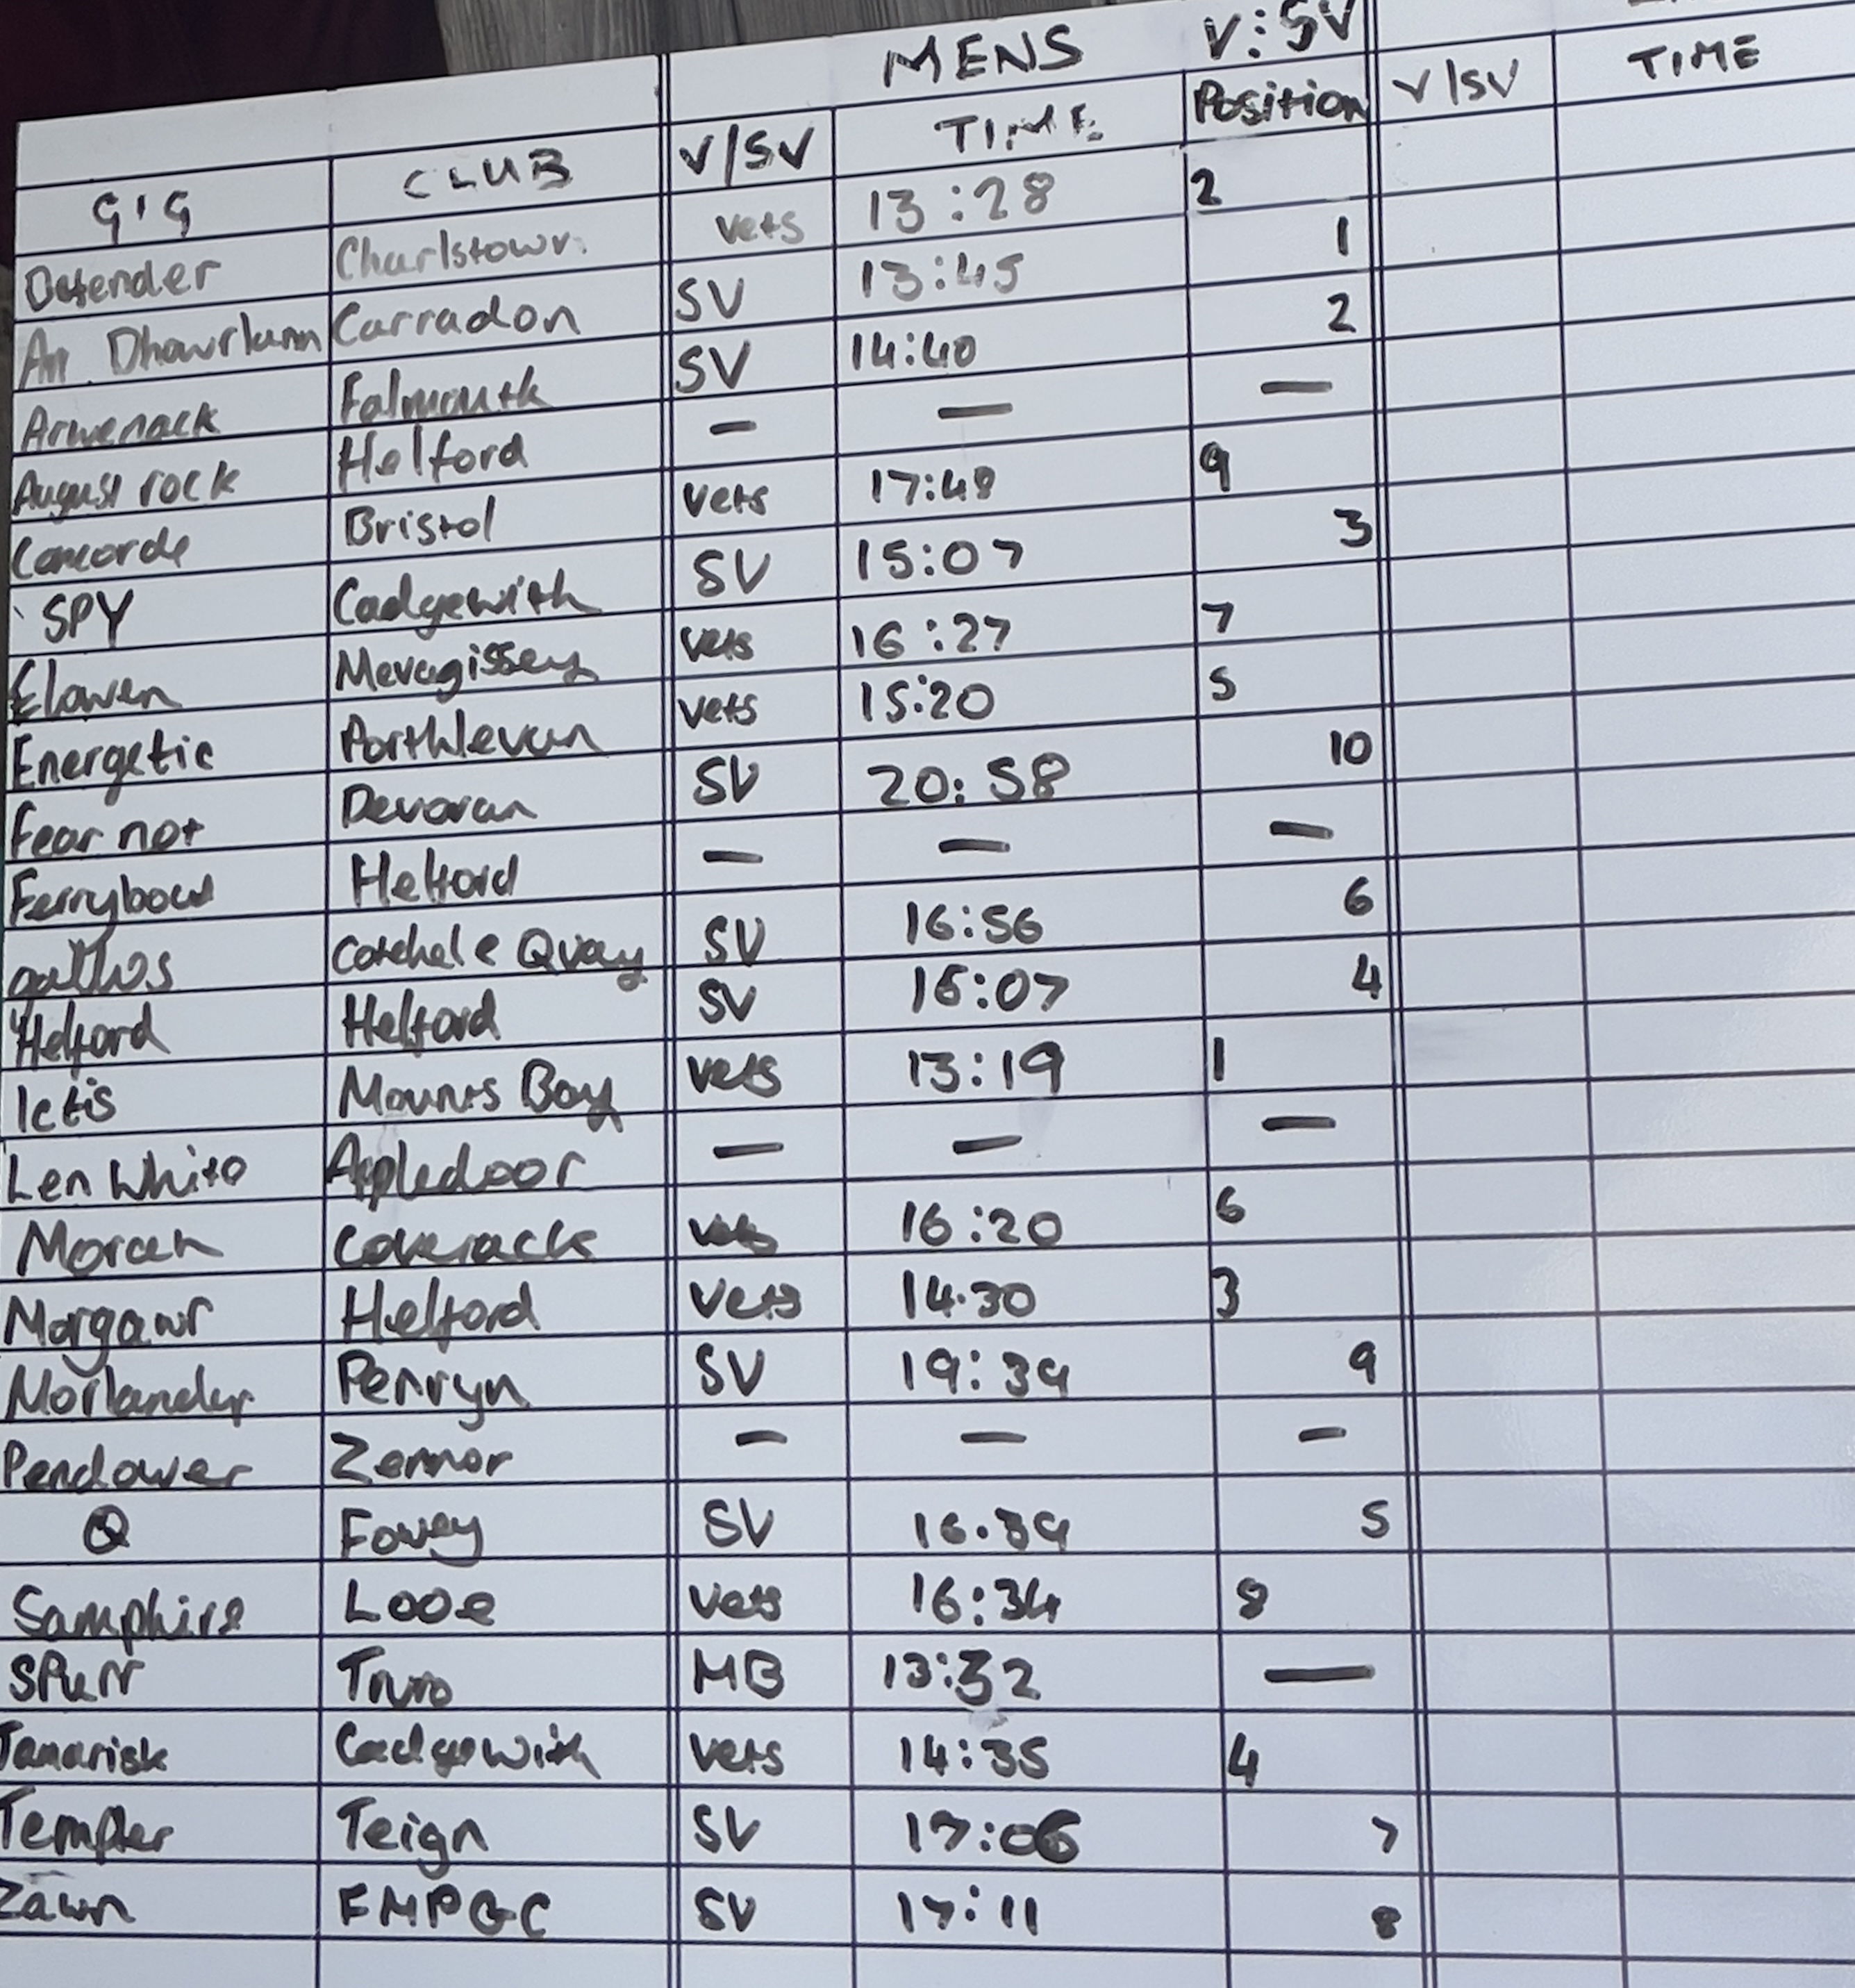 MENS V:SV
GIG CLUB V/SV TIME Position V/SV TIME
Defender Charlstown vets 13:28 2
An Dhowrlann Carradon SV 13:45 1
Arwenack Falmouth SV 14:40 2
August rock Helford — — —
Concorde Bristol vets 17:48 9
SPY Cadgewith SV 15:07 3
Elowen Mevagissey vets 16:27 7
Energetic Porthleven vets 15:20 5
Fear not Devoran SV 20:58 10
Ferryboat Helford — — —
gallos Cotehele Quay SV 16:56 6
Helford Helford SV 16:07 4
Ictis Mounts Bay vets 13:19 1
Len White Appledoor — — —
Morcen Coverack vets 16:20 6
Morgawr Helford Vets 14.30 3
Morlander Penryn SV 19:39 9
Pendower Zennor — — —
Q Fowey SV 16.39 5
Samphire Looe vets 16:34 8
SPurr Truro MB 13:32 —
Tamarisk Cadgewith vets 14:35 4
Templer Teign SV 17:06 7
Zawn FMPGC SV 17:11 8